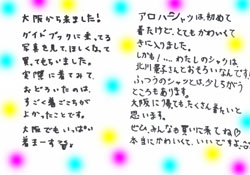 大阪から来ました!
ガイドブックに載ってる
写真を見て、ほしくなって
買ってもらいました。
実際に着てみて、
おどろいたのは、
すごく着ごこちが
よかったことです。
大阪でもいっぱい
着まーす
アロハシャツは、初めて
着たけど、とてもかわいくて
きに入りました。
しかも!...わたしのシャツは
北川景子さんとおそろいなんです!
ふつうのシャツとは、少しちがう
ところもあります。
大阪に帰ても、たくさん着たいと
思います。
ぜひ、みんなも買いに来てね
本当にかわいくて、いいですよ